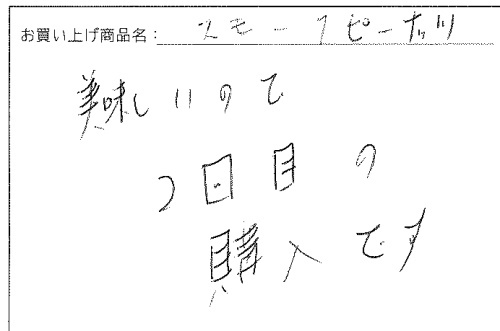 お買い上げ商品名：スモークピーナッツ
美味しいので
2回目の
購入です